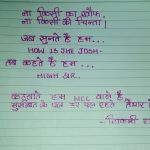 ना किसी का खौफ,
ना किसी की चिन्ता।
जब सुनते है हम...
HOW IS THE JOSH-
तब कहते है हम...
HIGH SIR.
कहलाते हम NCC वाले है,
मुसीबत के पल हर पल रहते तैयार है